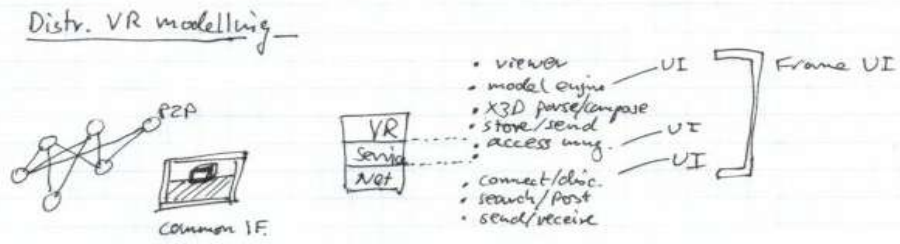 Distr. VR modelling
P2P
common IF.
VR
Service
Net
• viewer
• model engine UI
• X3D parse/compose
• store/send
• access mng. UI
•
• connect/disc. UI
• search/post
• send/receive
Frame UI